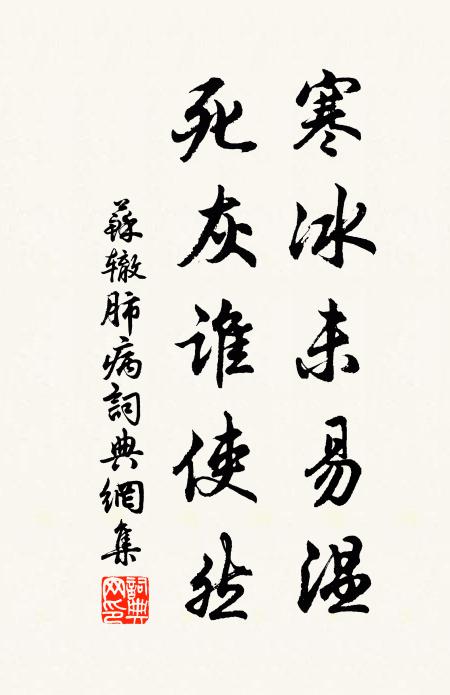 寒冰未易温
死灰谁使然
蘇辙肺病詞典網集
詞典网印